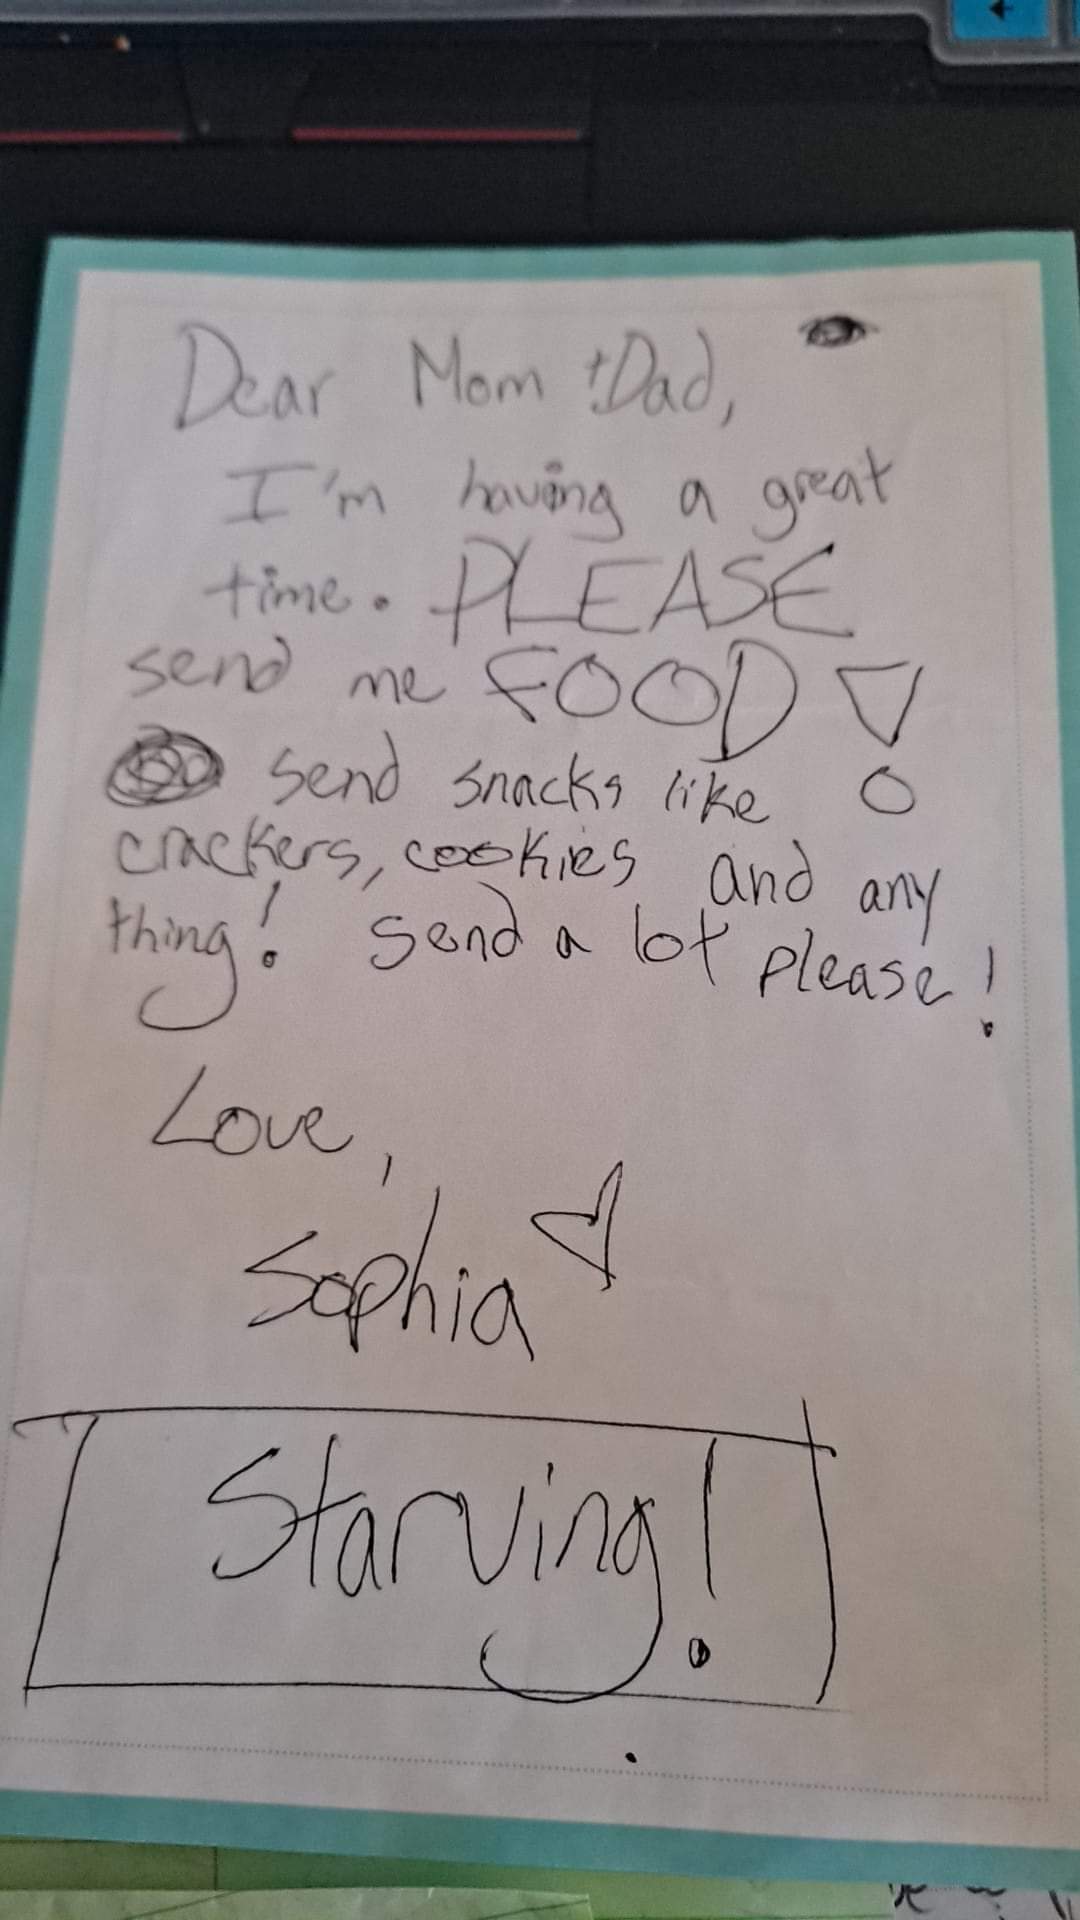 Dear Mom + Dad,
I'm having a great
time. PLEASE
send me FOOD!
send snacks like
crackers, cookies and any
thing! send a lot please!
Love,
Sophia
Starving!